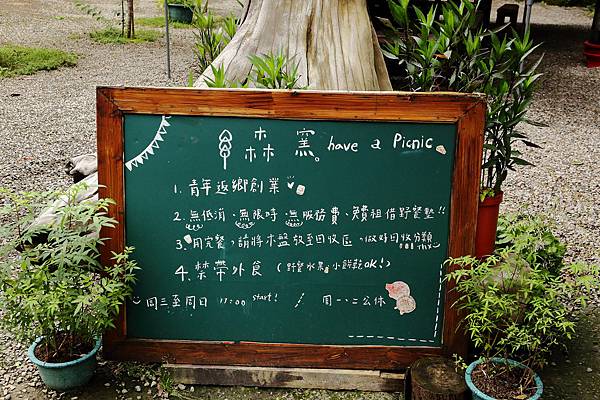 森窯。have a Picnic
1. 青年返鄉創業
2. 無低消、無限時、無服務費、免費租借野餐墊!!
3. 用完餐,請將木盤放至回收區,做好回收分類 thx
4. 禁帶外食(野餐水果、小餅乾OK!)
周三至周日 11:00 start! / 周一、二公休